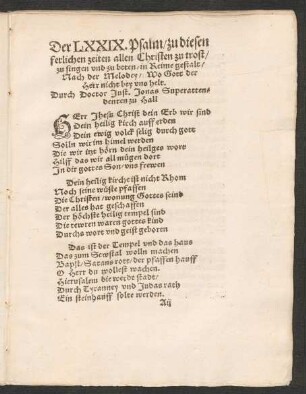 Der LXXIX. Psalm/ zu diesen
ferlichen zeiten allen Christen zu trost/
zu singen vnd zu beten/ in Reime gestalt/
Nach der Melodey/ Wo Gott der
Herr nicht bey vns helt.
Durch Doctor Just. Jonas Superatten-
denten zu Hall
HErr Jhesu Christ dein Erb wir sind
Dein heilig kirch auff erden
Dein ewig volck selig durch gott
Solln wir im himel werden
Die wir itzt hörn dein heiliges wort
Hilff das wir all mügen dort
In dir gottes Son/ vns frewen
Dein heilig kirche ist nicht Rhom
Noch seine wüste pfaffen
Die Christen/ wonung Gottes seind
Der alles hat geschaffen
Der höchste heilig tempel sind
Die tewren waren gottes kind
Durchs wort vnd geist geboren
Das ist der Tempel vnd das haus
Das zum Sewstal wolln machen
Bapst/ Satans rott/ der pfaffen hauff
O Herr du wollest wachen.
Hierusalem die werde stadt/
Durch Tyranney vnd Judas rath
Ein steinhauff solte werden.
Aij